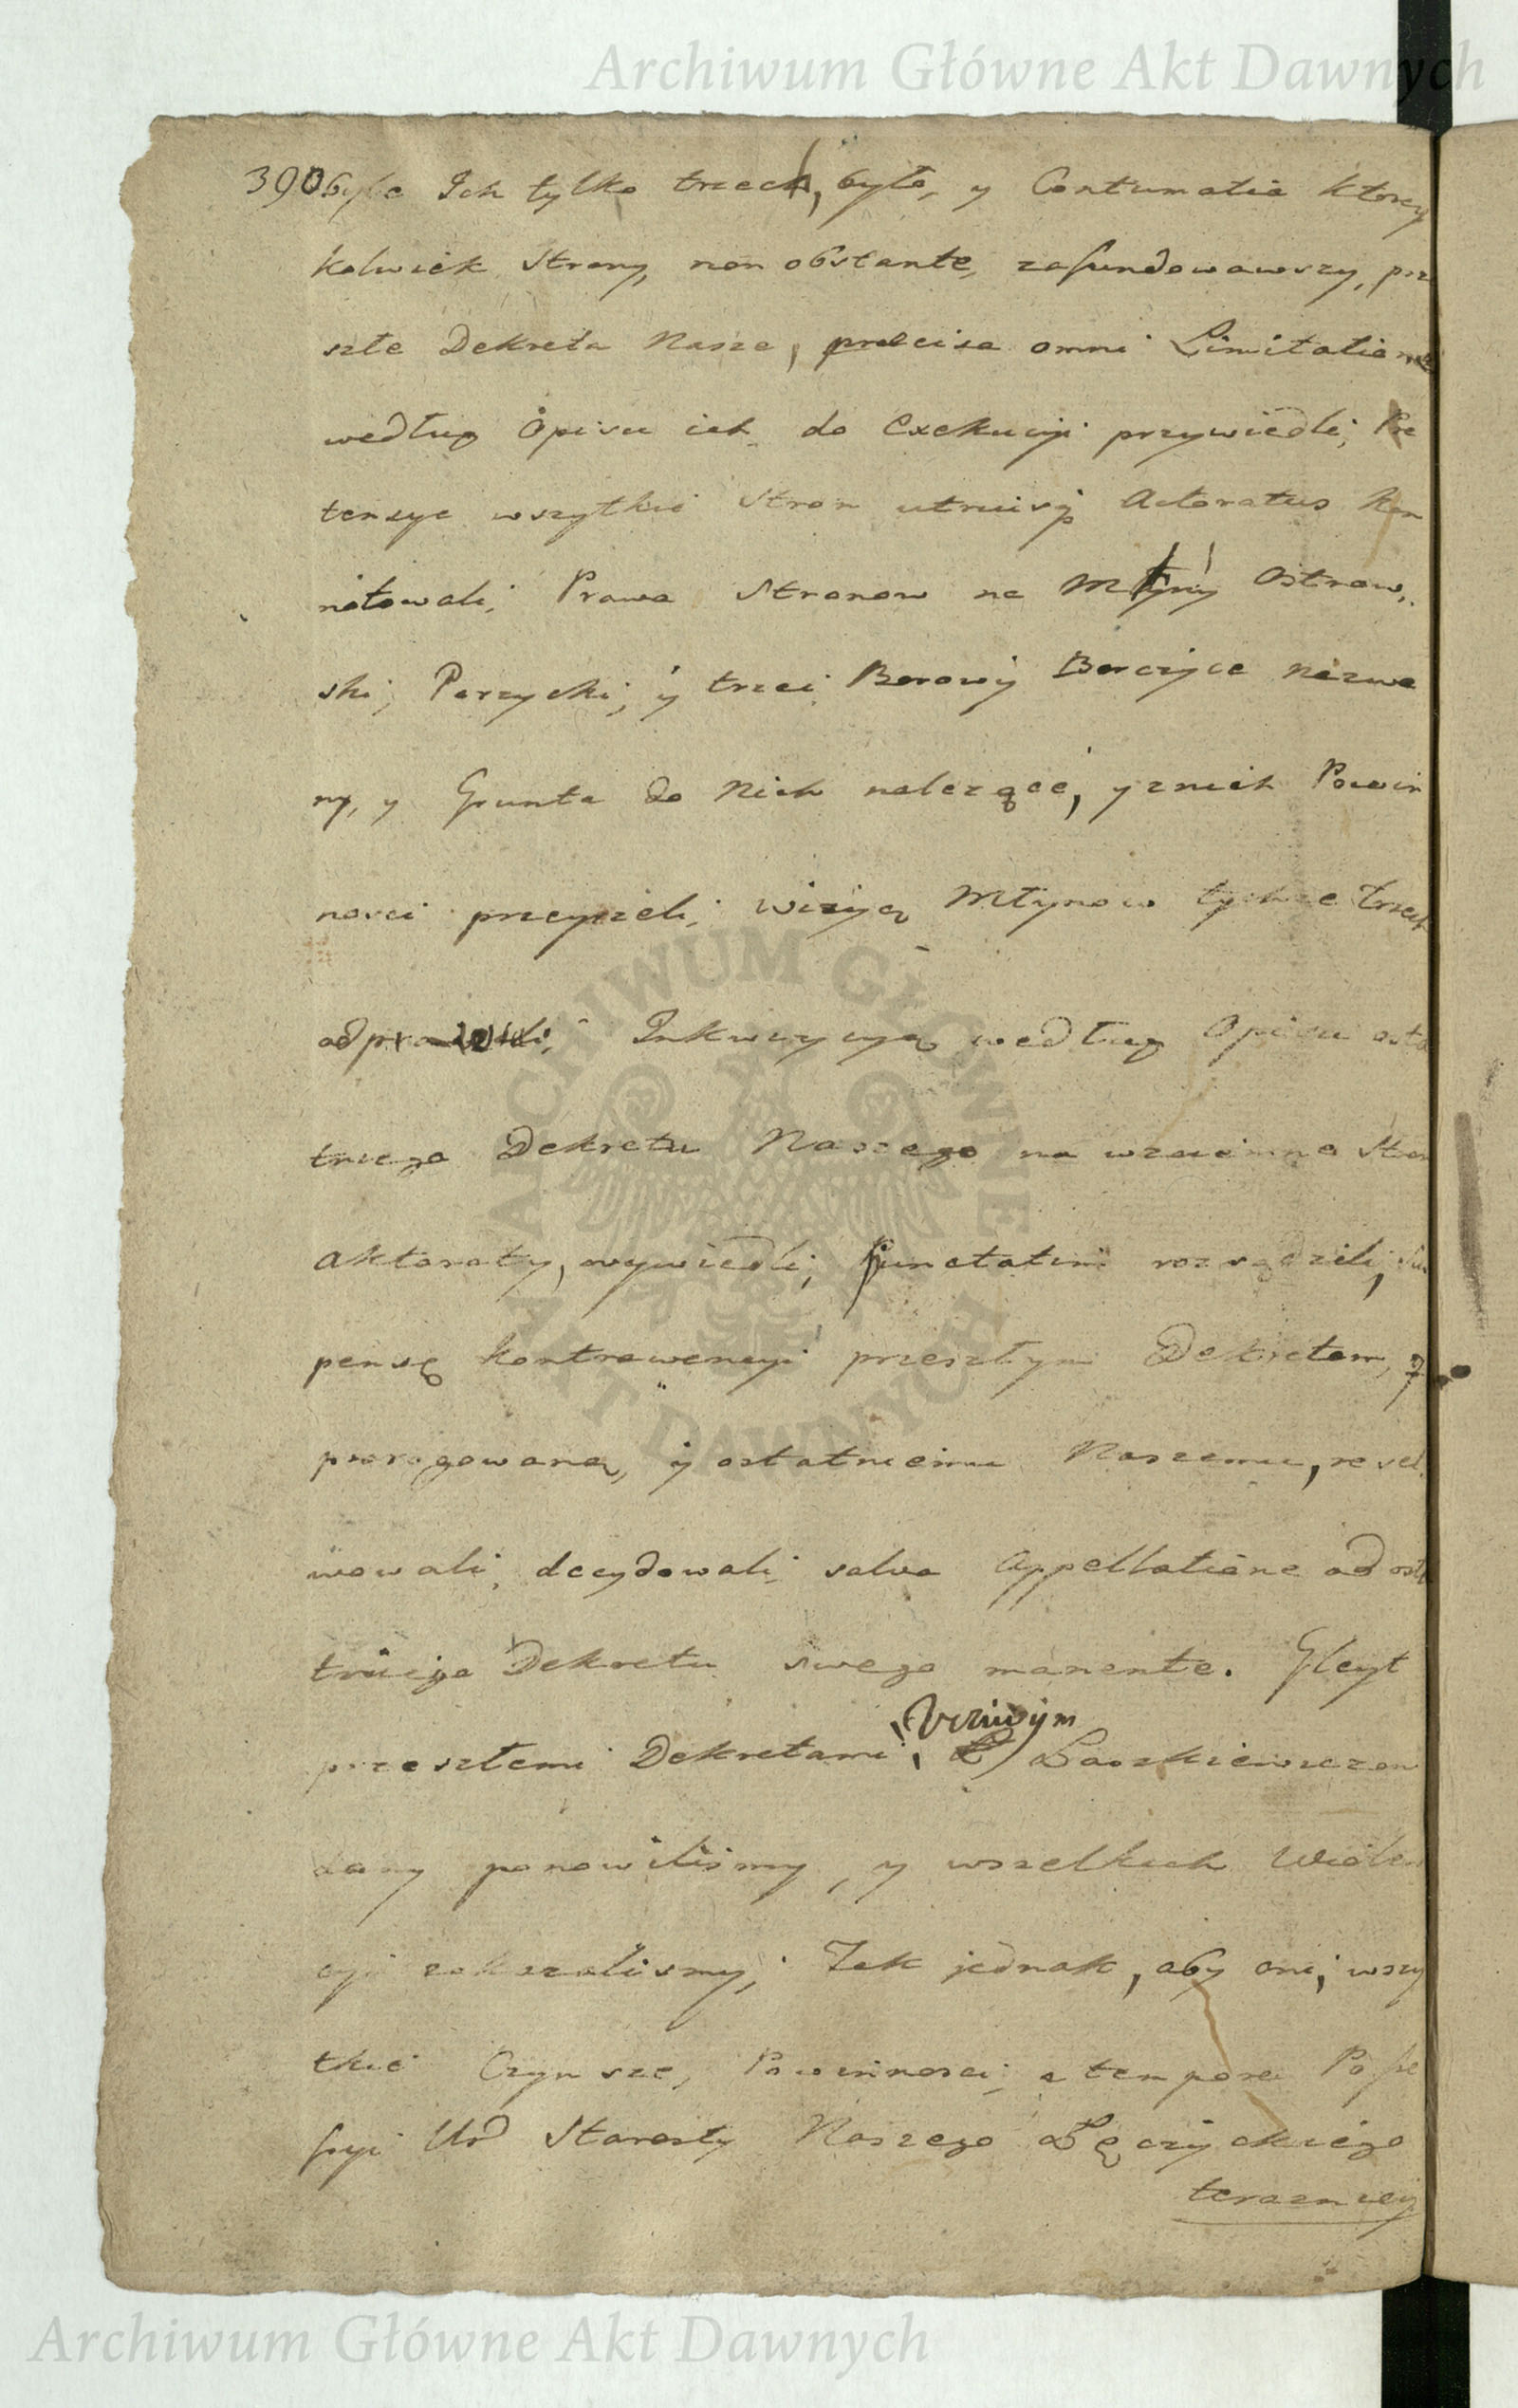 Archiwum Główne Akt Dawnych
390 byle Ich tylko trzech, było, y Contumatia ktorey
kolwiek Strony, non obstante, zafundowawszy, prze
szłe Dekreta Nasze, praecisa omni Limitatione
według Opisu ich do Exekucyi przywiedli; Pre
tensye wszytkie Stron utriusq Actoratus kon
notowali; Prawa Stronom na Młyny Ostrow,,
ski, Parzycki; y trzci Borowy Borczyce nazwa
ny, y Grunta do Nich należące, y znich Powin
nosci przeyrzeli; wizyą Młynow tychże trzech
odprawili; Inkwizycyą według Opisu osta
tniego Dekretu Naszego na wzaiemne Stron
Aktoraty, wywiedli; Punctatim rozsądzili; Sus
pensę kontrawencyi przeszłym Dekretem,
prorogowaną, y ostatniemu Naszemu, resol
wowali, decydowali salva Appellatione ad osta
tniego Dekretu swego manente. Gleyt
przeszłemi Dekretami, Uczciwym Laszkiewiczom
dany ponowiliśmy, y wszelkich Violen
cyi zakazaliśmy; Jak jednak, aby oni, wszy
tkie Czynsze, Powinnosci, a tempore Posse
ssyi Ur Starosty Naszego Łęczyckiego
terazniey
ARCHIWUM GŁÓWNE AKT DAWNYCH
Archiwum Główne Akt Dawnych